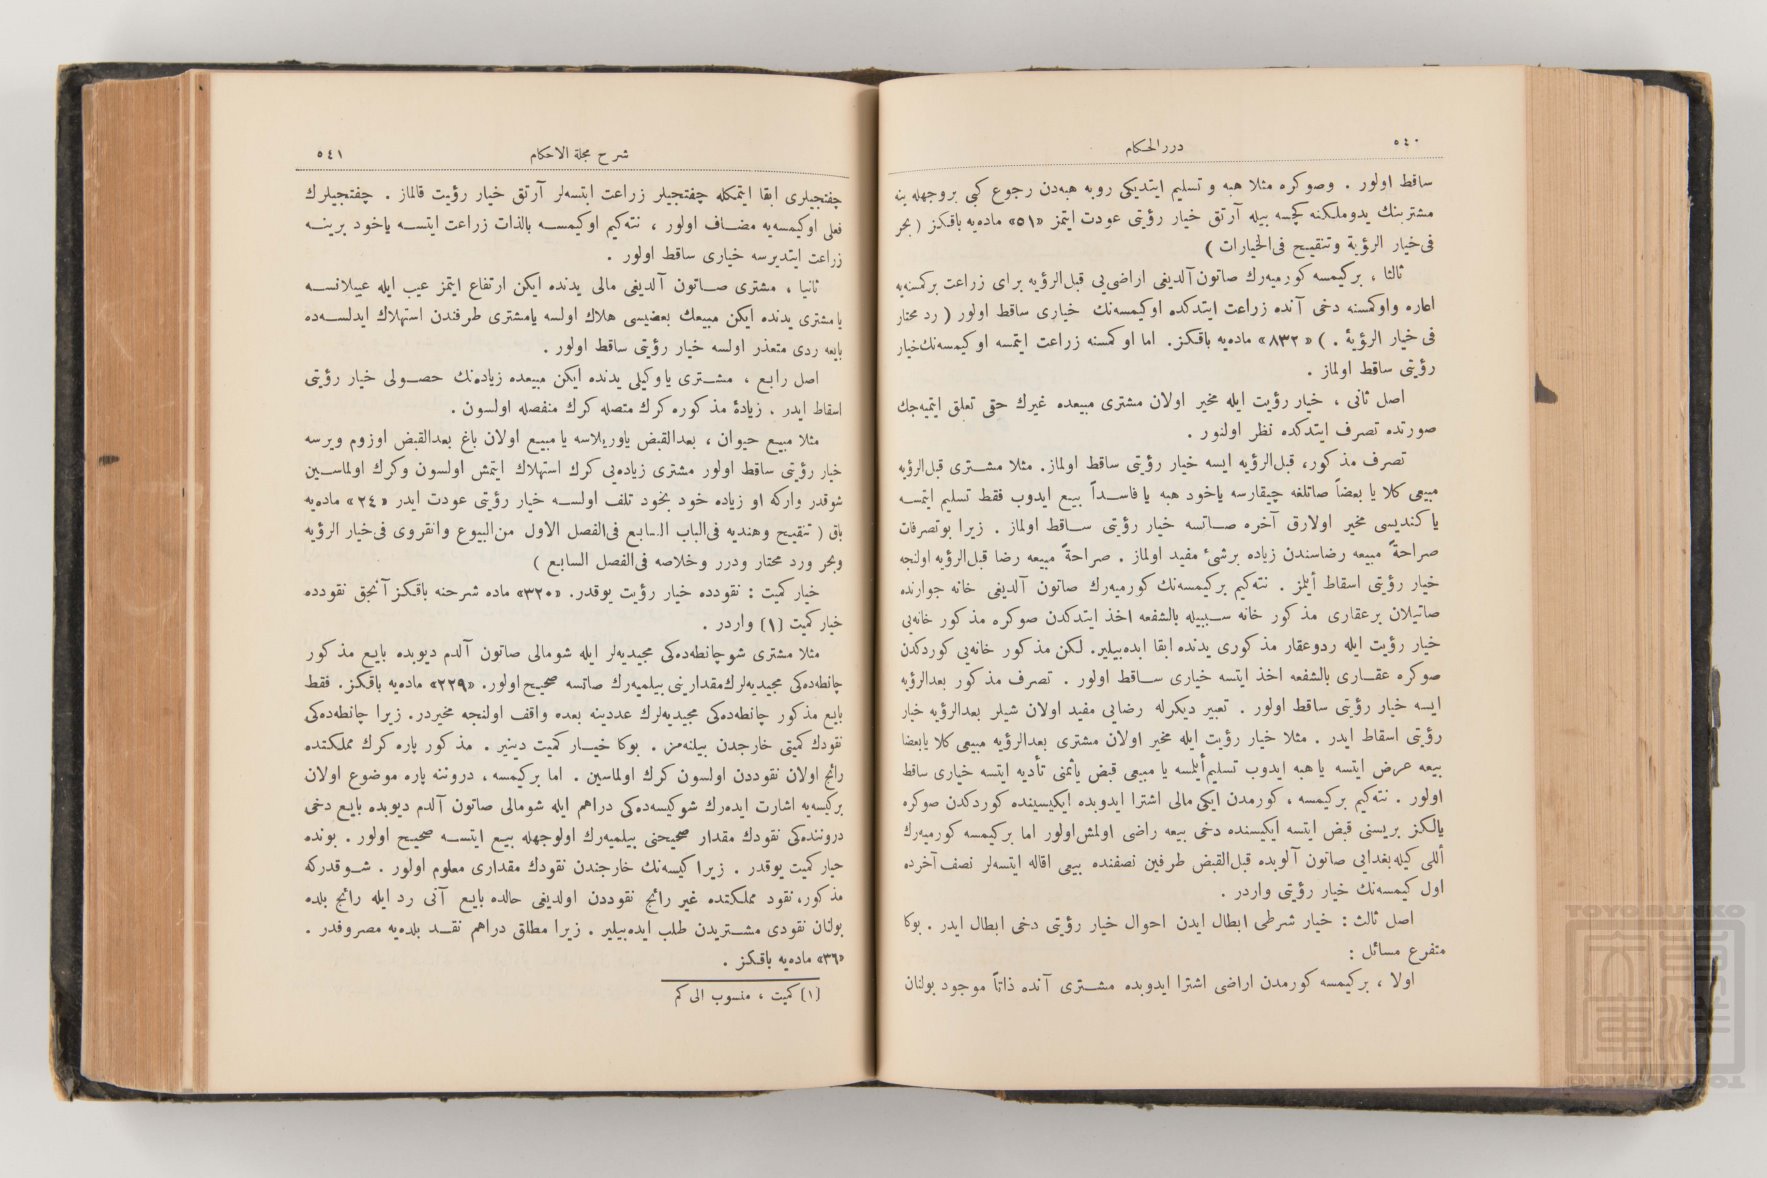 ٥٤٠
دررالحكام
ساقط اولور . وصوكره مثلا هبه و تسليم ايتديكى رويه هبه‌دن رجوع كبى بروجهله ينه
مشترينك يدوملكنه كچسه بيله آرتق خيار رؤيتى عودت ايتمز «٥١» ماده‌يه باقكز ( بحر
فى‌خيار الرؤية وتنقيح فى‌الخيارات )
ثالثا ، بركيمسه كورميه‌رك صاتون‌آلديغى اراضى‌يى قبل‌الرؤيه براى زراعت بركمسنه‌يه
اعاره واوكمسنه دخى آنده زراعت ايتدكده اوكيمسه‌نك خيارى ساقط اولور ( رد محتار
فى خيار الرؤية . ) «٨٣٢» ماده‌يه باقكز. اما اوكمسنه زراعت ايتمسه اوكيمسه‌نك‌خيار
رؤيتى ساقط اولماز .
اصل ثانى ، خيار رؤيت ايله مخير اولان مشترى مبيعده غيرك حقى تعلق ايتميه‌جك
صورتده تصرف ايتدكده نظر اولنور .
تصرف مذكور، قبل‌الرؤيه ايسه خيار رؤيتى ساقط اولماز. مثلا مشترى قبل‌الرؤيه
مبيعى كلا يا بعضاً صاتلغه چيقارسه ياخود هبه يا فاسداً بيع ايدوب فقط تسليم ايتمسه
يا كنديسى مخير اولارق آخره صاتسه خيار رؤيتى ساقط اولماز . زيرا بوتصرفات
صراحةً مبيعه رضاسندن زياده برشىٔ مفيد اولماز . صراحةً مبيعه رضا قبل‌الرؤيه اولنجه
خيار رؤيتى اسقاط أيلز . نته‌كيم بركيمسه‌نك كورميه‌رك صاتون آلديغى خانه جوارنده
صاتيلان برعقارى مذكور خانه سببيله بالشفعه اخذ ايتدكدن صوكره مذكور خانه‌يى
خيار رؤيت ايله ردوعقار مذكورى يدنده ابقا ايده‌بيلير. لكن مذكور خانه‌يى كوردكدن
صوكره عقارى بالشفعه اخذ ايتسه خيارى ساقط اولور . تصرف مذكور بعدالرؤيه
ايسه خيار رؤيتى ساقط اولور . تعبير ديكرله رضايى مفيد اولان شيلر بعدالرؤيه خيار
رؤيتى اسقاط ايدر . مثلا خيار رؤيت ايله مخير اولان مشترى بعدالرؤيه مبيعى كلا يابعضا
بيعه عرض ايتسه يا هبه ايدوب تسليم‌أيلسه يا مبيعى قبض ياثمنى تأديه ايتسه خيارى ساقط
اولور . نته‌كيم بركيمسه ، كورمدن ايكى‌مالى اشترا ايدوبده ايكيسينده كوردكدن صوكره
يالكز بريسنى قبض ايتسه ايكيسنده دخى بيعه راضى اولمش‌اولور اما بركيمسه كورميه‌رك
أللى كيله‌بغدايى صاتون آلوبده قبل‌القبض طرفين نصفنده بيعى اقاله ايتسه‌لر نصف‌آخرده
اول كيمسه‌نك خيار رؤيتى واردر .
اصل ثالث : خيار شرطى ابطال ايدن احوال خيار رؤيتى دخى ابطال ايدر . بوكا
متفرع مسائل :
اولا ، بركيمسه كورمدن اراضى اشترا ايدوبده مشترى آنده ذاتاً موجود بولنان
شرح مجلة الاحكام
٥٤١
چفتجيلرى ابقا ايتمكله چفتجيلر زراعت ايتسه‌لر آرتق خيار رؤيت قالماز . چفتجيلرك
فعلى اوكيمسه‌يه مضاف اولور ، نته‌كيم اوكيمسه بالذات زراعت ايتسه ياخود برينه
زراعت ايتديرسه خيارى ساقط اولور .
ثانيا ، مشترى صاتون آلديغى مالى يدنده ايكن ارتفاع ايتمز عيب ايله عيبلانسه
يا مشترى يدنده ايكن مبيعك بعضيسى هلاك اولسه يامشترى طرفندن استهلاك ايدلسه‌ده
بايعه ردى متعذر اولسه خيار رؤيتى ساقط اولور .
اصل رابع ، مشترى ياوكيلى يدنده ايكن مبيعده زياده‌نك حصولى خيار رؤيتى
اسقاط ايدر . زيادهٔ مذكوره كرك متصله كرك منفصله اولسون .
مثلا مبيع حيوان ، بعدالقبض ياوريلاسه يا مبيع اولان باغ بعدالقبض اوزوم ويرسه
خيار رؤيتى ساقط اولور مشترى زياده‌يى كرك استهلاك ايتمش اولسون وكرك اولماسين
شوقدر واركه او زياده خود بخود تلف اولسه خيار رؤيتى عودت ايدر «٢٤» ماده‌يه
باق ( تنقيح وهنديه فى‌الباب السابع فى‌الفصل الاول من‌البيوع وانقروى فى‌خيار الرؤيه
وبحر ورد محتار ودرر وخلاصه فى‌الفصل السابع )
خيار كميت : نقودده خيار رؤيت يوقدر. «٣٢٠» ماده شرحنه باقكز آنجق نقودده
خيار كميت [١] واردر .
مثلا مشترى شوچانطه‌ده‌كى مجيديه‌لر ايله شومالى صاتون آلدم ديوبده بايع مذكور
چانطه‌ده‌كى مجيديه‌لرك‌مقدارينى بيلميه‌رك صاتسه صحيح‌اولور. «٢٢٩» ماده‌يه باقكز. فقط
بايع مذكور چانطه‌ده‌كى مجيديه‌لرك عددينه بعده واقف اولنجه مخيردر. زيرا چانطه‌ده‌كى
نقودك كميتى خارجدن بيلنه‌مز . بوكا خيار كميت دينير . مذكور پاره كرك مملكتده
رائج اولان نقوددن اولسون كرك اولماسين . اما بركيمسه ، دروننه پاره موضوع اولان
بركيسه‌يه اشارت ايده‌رك شوكيسه‌ده‌كى دراهم ايله شومالى صاتون آلدم ديوبده بايع دخى
دروننده‌كى نقودك مقدار صحيحنى بيلميه‌رك اولوجهله بيع ايتسه صحيح اولور . بونده
خيار كميت يوقدر . زيرا كيسه‌نك خارجندن نقودك مقدارى معلوم اولور . شوقدركه
مذكور، نقود مملكتده غير رائج نقوددن اولديغى حالده بايع آنى رد ايله رائج بلده
بولنان نقودى مشتريدن طلب ايده‌بيلير . زيرا مطلق دراهم نقد بلده‌يه مصروفدر .
«٣٦» ماده‌يه باقكز .
[١] كميت ، منسوب الى كم
TOYO BUNKO